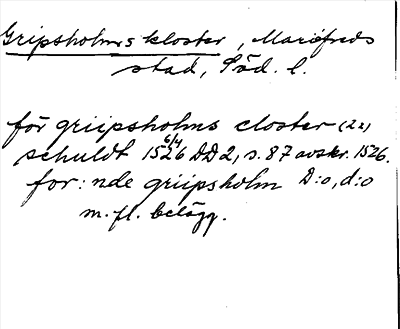 Gripsholms kloster, Mariefreds
stad, Söd. l.
för griipsholms closter (2x)
schuldt 15 6/4 26 DD2, s. 87 avskr. 1526.
for:nde griipsholm D:o, d:o
m. fl. belägg.